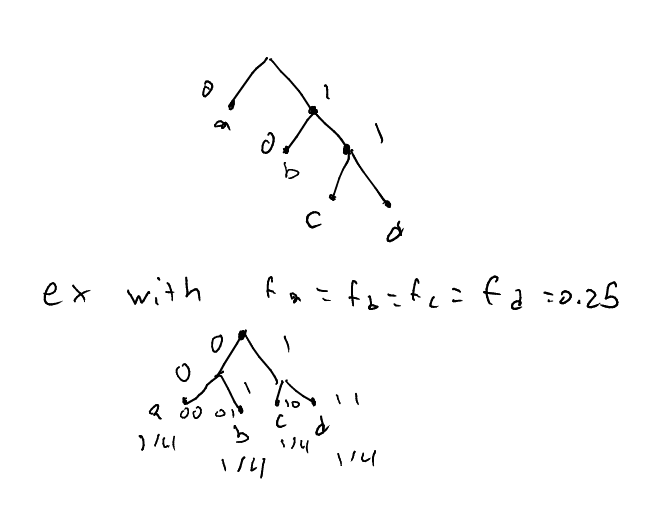 0 1
a
0 1
b
c
d
ex with f_a = f_b = f_c = f_d = 0.25
0 1
0 1
a 00 01 c 10 d 11
b
1/4 1/4 1/4 1/4